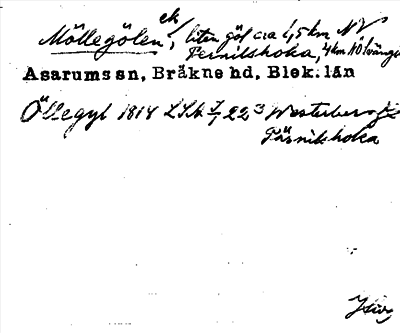 ek
Möllegölen, liten göl ca 1,5 km NV
Pernilshoka, 4 km NO
Asarums sn, Bräkne hd, Blek. län
Öllegyl 1814 LSA 22³ Westerberg
Pärnilshoka